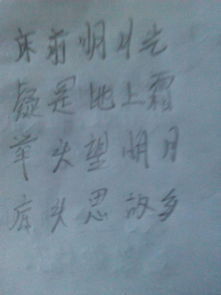 床前明月光
疑是地上霜
举头望明月
底头思故乡